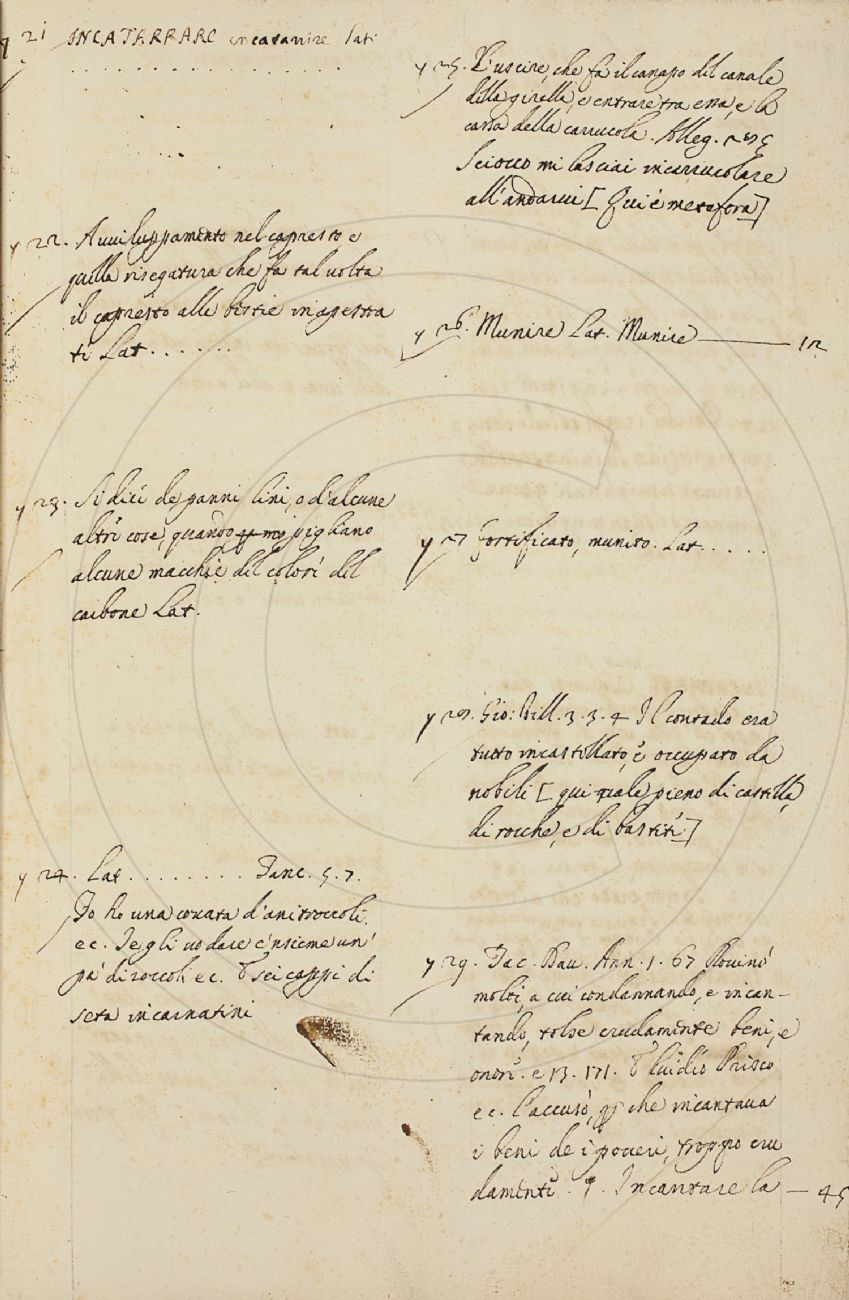 y 21 INCATERRARE incatarrire Lat:
. . . . . . . . . . . . . . . .
y 22. Avviluppamento nel capresto e
quella risegatura che fa tal volta
il capresto alle bestie incapestra
ti Lat . . . . . .
y 23. Si dici de panni lini, o d'alcune
altri cose, quando pigliano
alcune macchie del colori del
carbone Lat.
y 24. Lat . . . . . . . . Tanc. 5. 7.
Io ho una covata d'anitroccoli
ec. Te gli vo dare e 'nsieme un'
pa' di zoccoli ec. E sei cappi di
seta incarnatini
y 25. L'uscire, che fa il canapo del canale
della girella, e entrare tra essa, e la
cassa della carrucola. Alleg. 235
Sciocco mi lasciai incarrucolare
all'andarvi [Qui è metafora]
y 26. Munire Lat. Munire 12
y 27 Fortificato, munito. Lat . . . .
y 28. Gio: Vill. 3. 3. 4 Il contado era
tutto incastellato, e occupato da
nobili [qui vale pieno di castella,
di rocche, e di bastíe]
y 29. Tac. Dav. Ann. 1. 67 Rovinò
molti, a cui condannando, e incan-
tando, tolse crudamente beni, e
onori. e 13. 171. E Luidio Prisco
ec. l'accusò, che incantava
i beni de i poveri, troppo cru
damenti. §. Incantare la 45